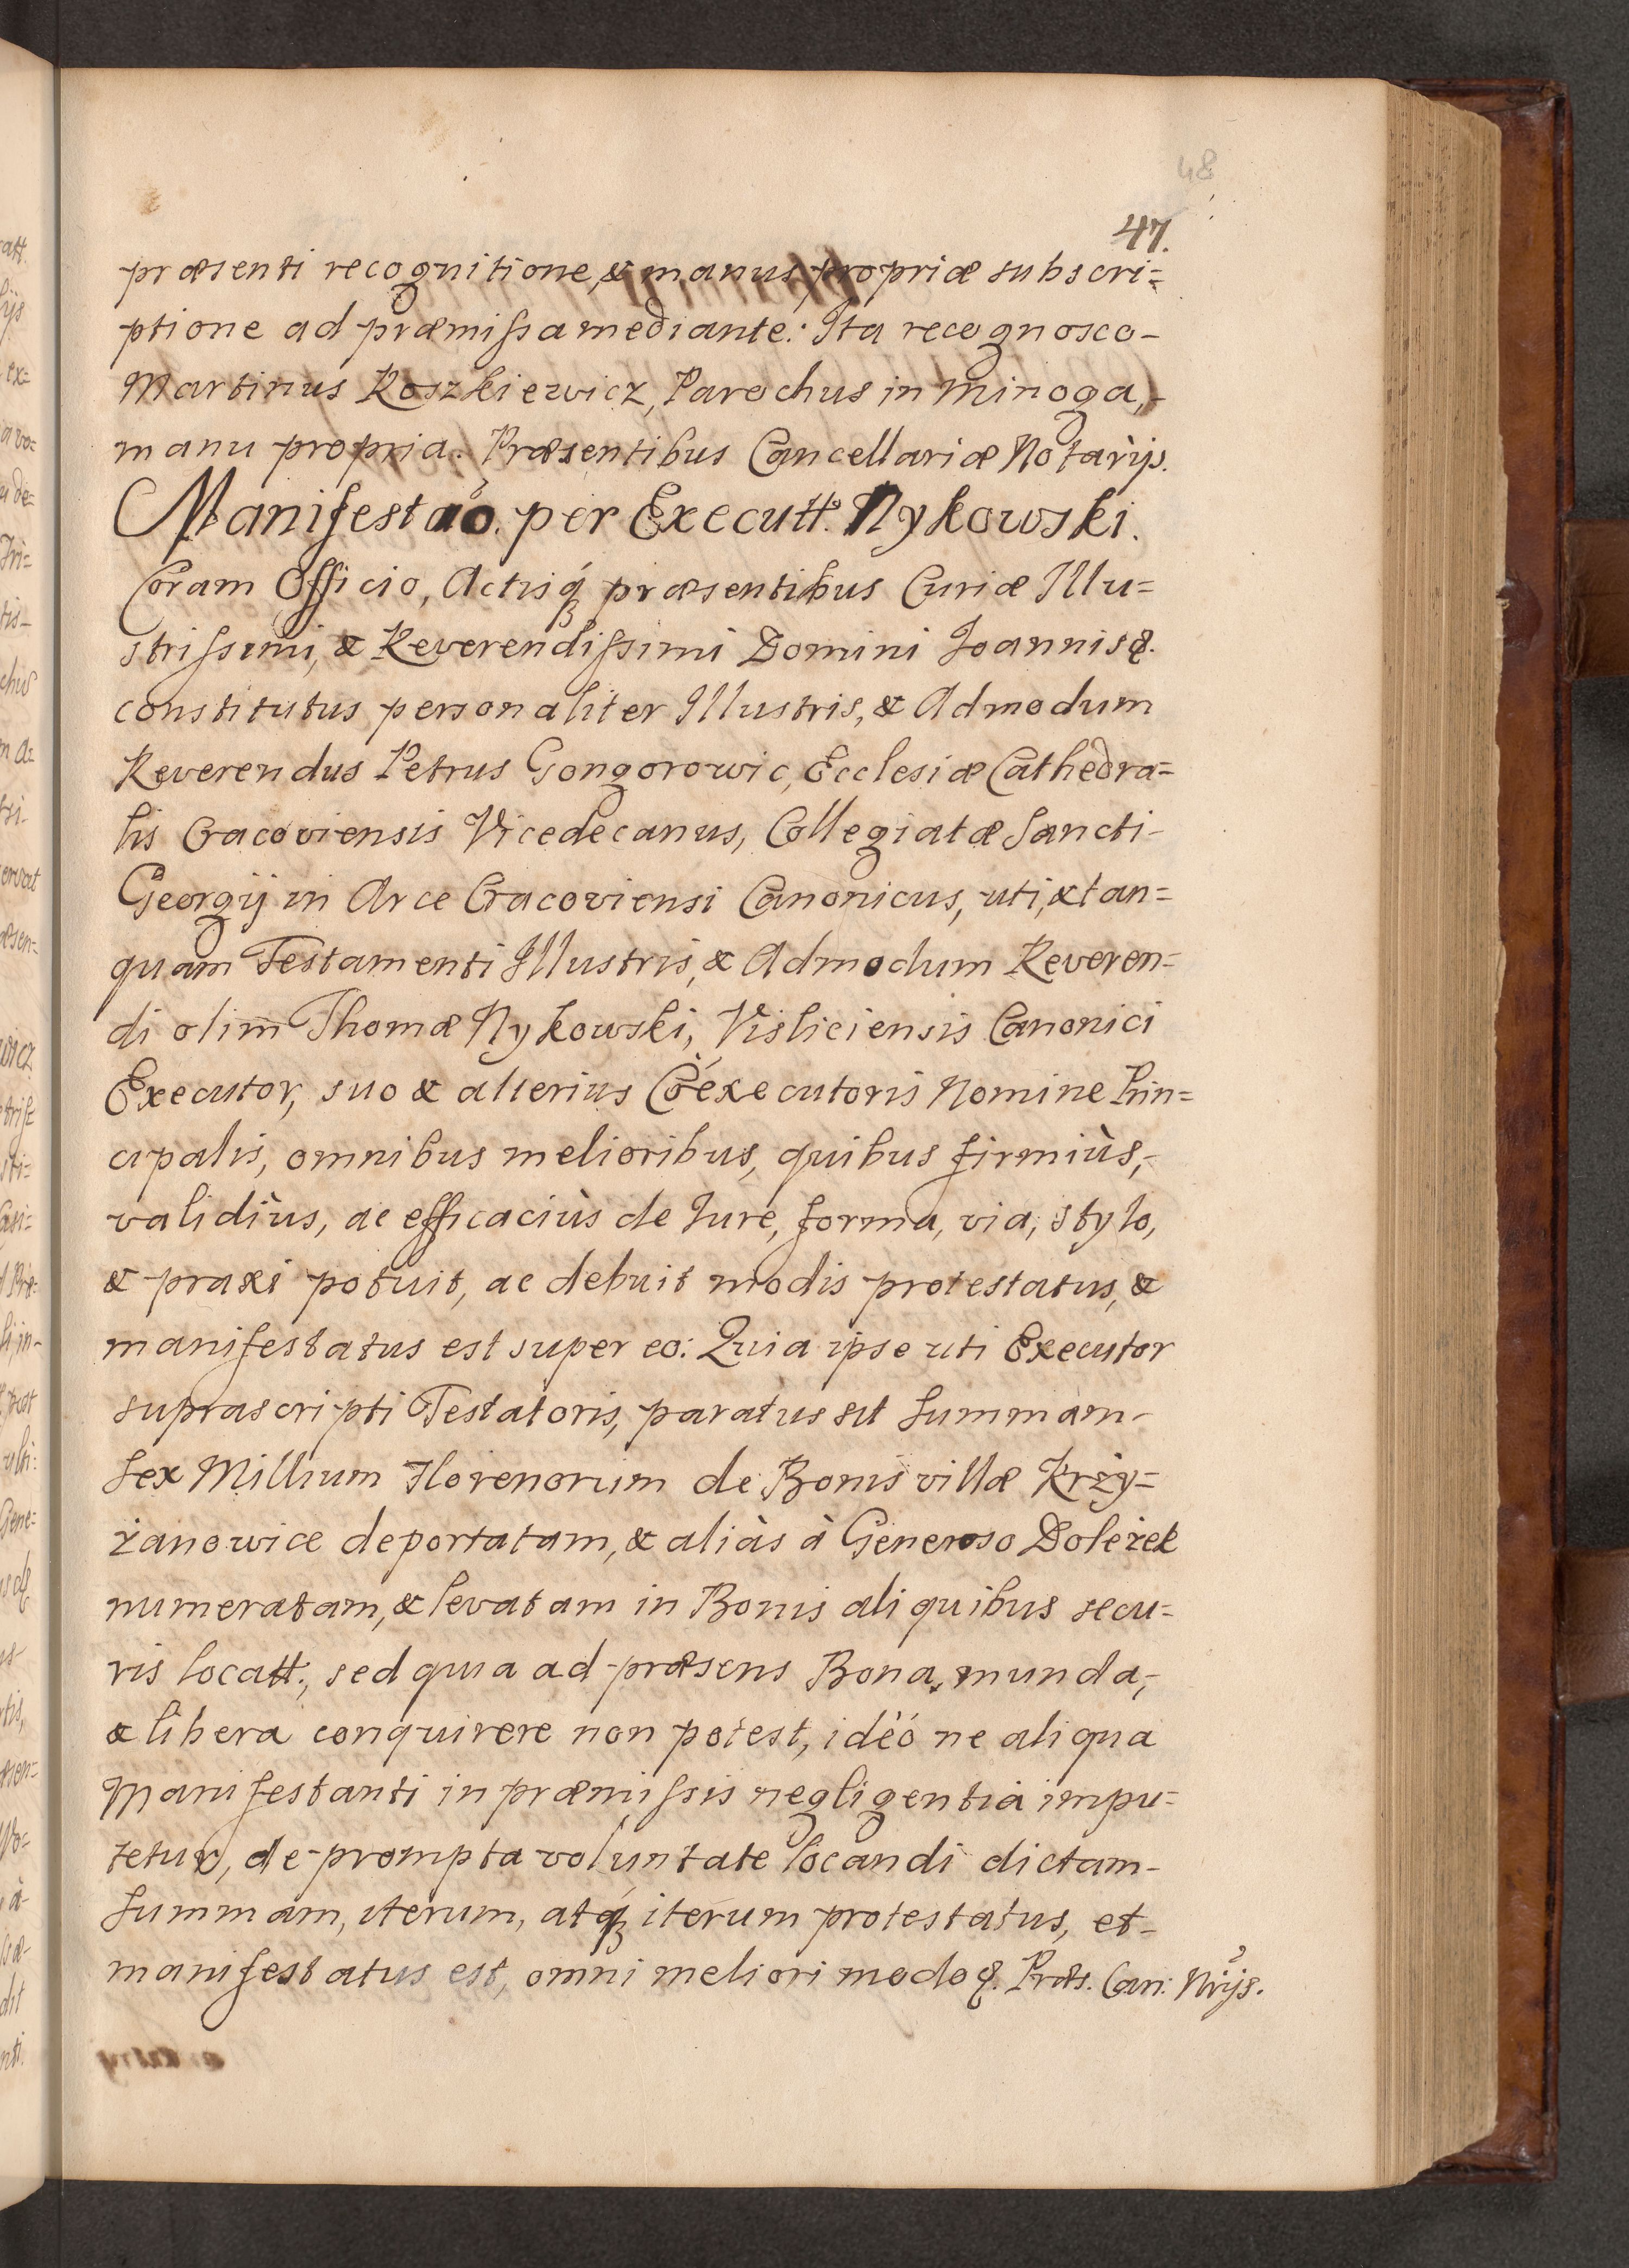 48
47.
præsenti recognitione, & manus propriæ subscri=
ptione ad præmissa mediante: Ita recognosco-
Martinus Roszkiewicz, Parochus in Minoga,-
manu propria. Præsentibus Cancellariæ Notarijs.
Manifestao. per Executt. Nykowski.
Coram Officio, Actisq́ præsentibus Curiæ Illu=
strissimi, & Reverendissimi Domini Joannis &.
constitutus personaliter Illustris, & Admodum
Reverendus Petrus Gongorowic, Ecclesiæ Cathedra=
lis Cracoviensis Vicedecanus, Collegiatæ Sancti-
Georgij in Arce Cracoviensi Canonicus, uti, & tan=
quam Testamenti Illustris, & Admodum Reveren=
di olim Thomæ Nykowski, Visliciensis Canonici
Executor, suo & alterius Coexecutoris Nomine Prin=
cipalis, omnibus melioribus, quibus firmiùs,-
validiùs, ac efficaciùs de Jure, forma, via, stylo,
& praxi potuit, ac debuit modis protestatus, &
manifestatus est super eo: Quia ipse uti Executor
suprascripti Testatoris, paratus sit Summam-
Sex Millium Florenorum de Bonis villæ Krży=
żanowice deportatam, & aliàs à Generoso Doleżek
numeratam, & levatam in Bonis aliquibus secu=
ris locatt., sed quia ad præsens Bona, munda,-
& libera conquirere non potest, ideò ne aliqua
Manifestanti in præmissis negligentia impu=
tetur, de prompta voluntate locandi dictam-
Summam, iterum, atq́ iterum protestatus, et-
manifestatus est, omni meliori modo &. Præs. Can: Nrijs.